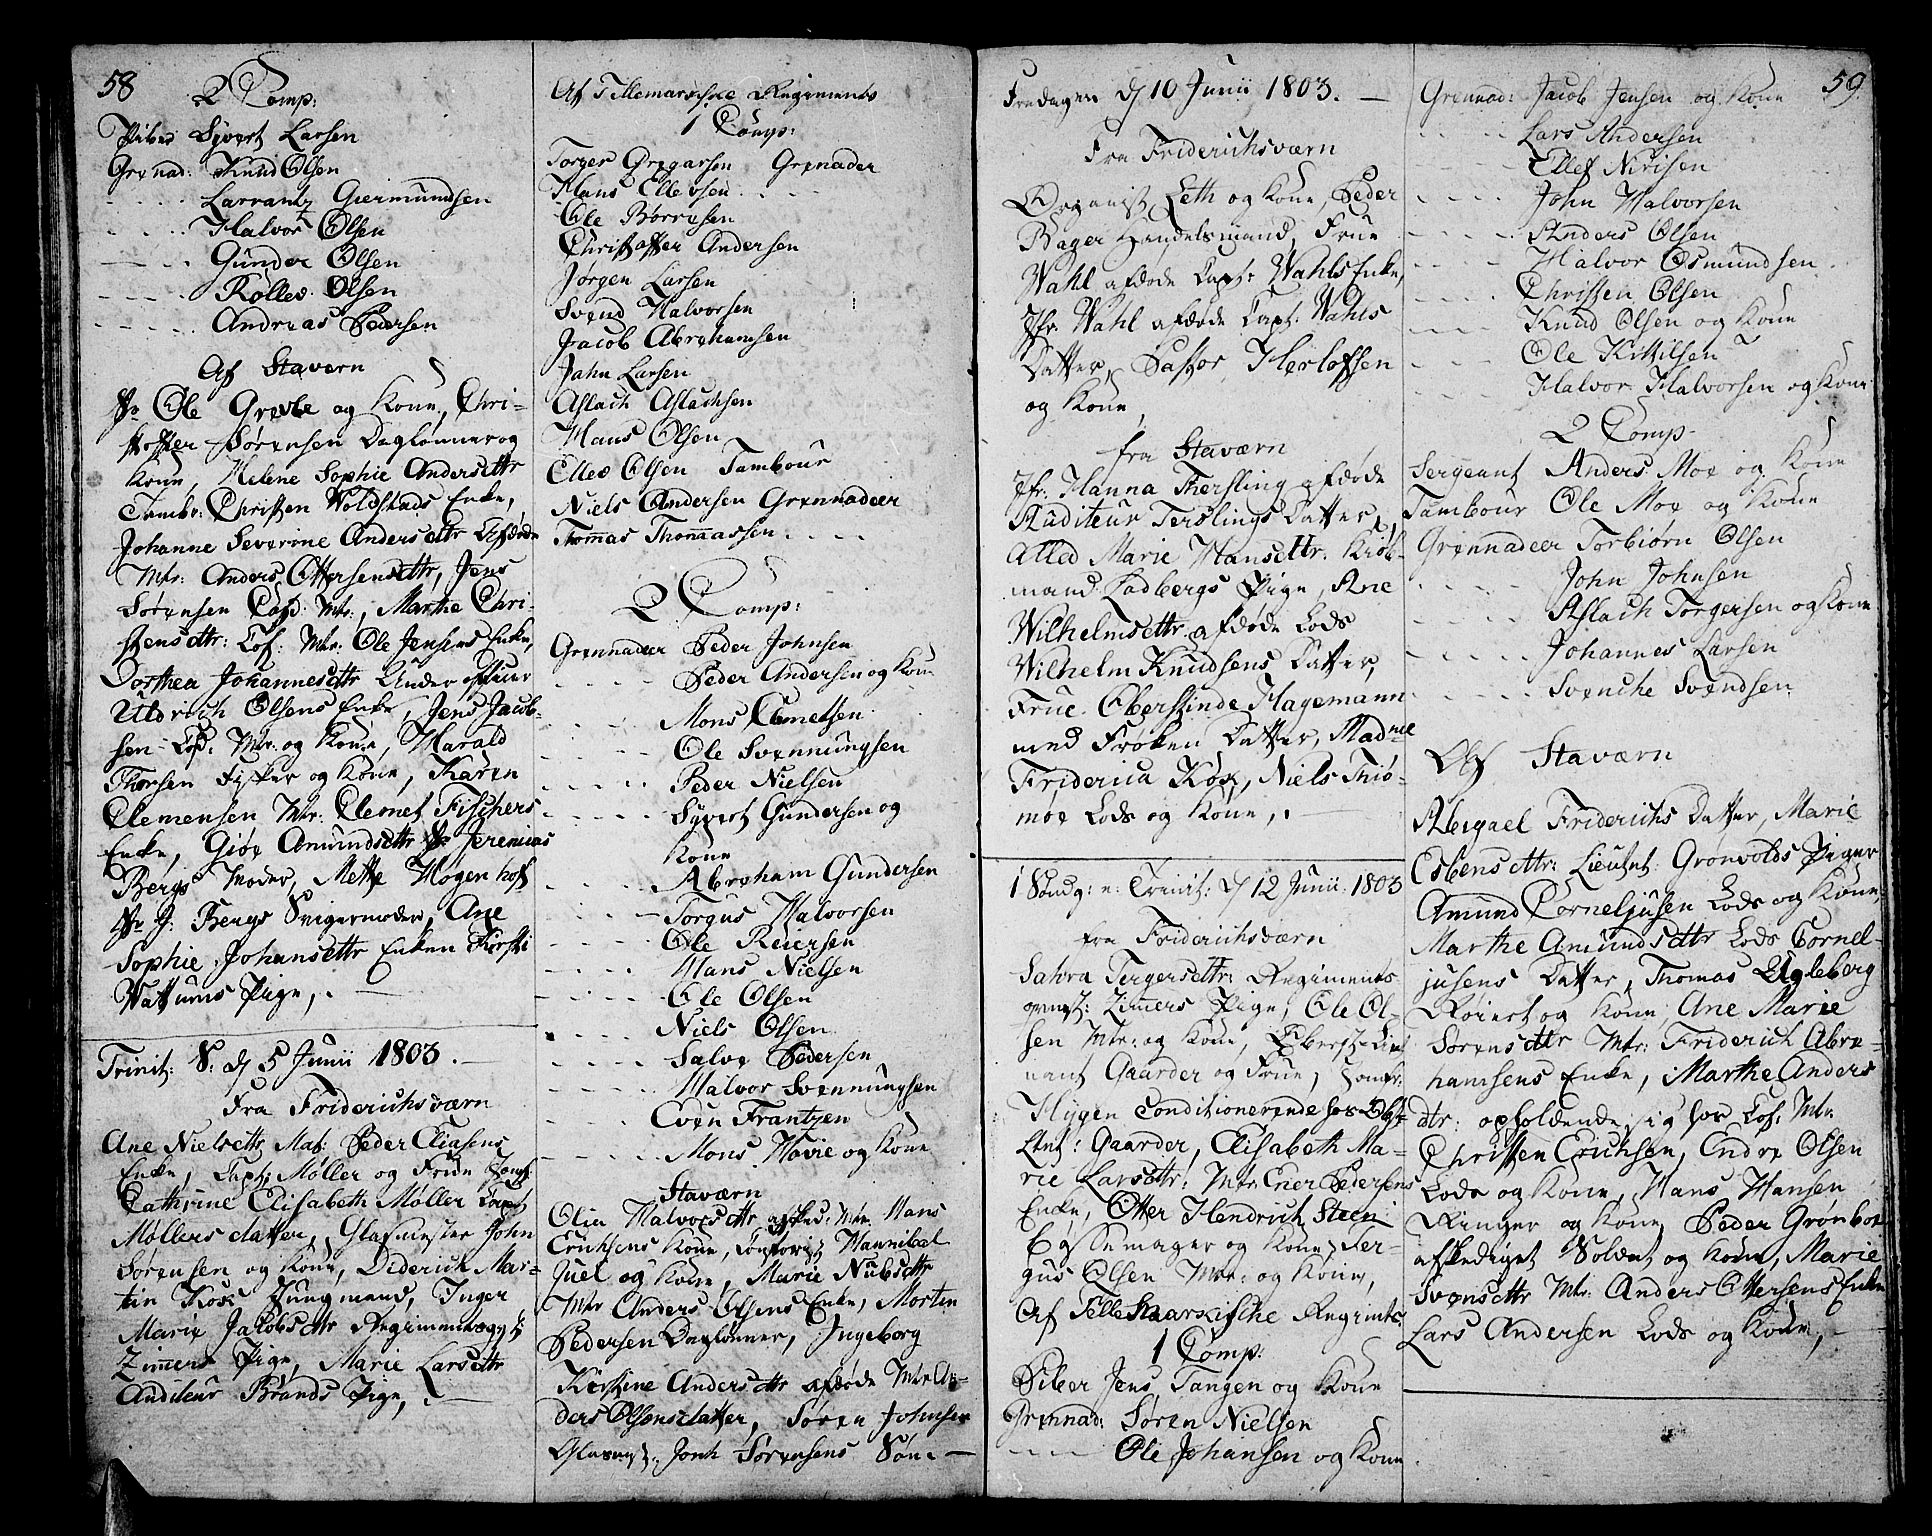 58
2 Comp:
Piber Syvert Larsen
Grenad: Knud Olsen
- - - - Larrantz Giermundsen
- - - - Halvor Olsen
- - - - Gunder Olsen
- - - - Rollev Olsen
- - - - Andreas Pedersen
Af Stavern
Hr Ole Grevle og Kone, Chri-
stoffer Sørensen Daglønner og
Kone, Helene Sophie Andersdttr
Tambr: Christen Woldstads Enke,
Johanne Severine Andersdttr Afdøde
Mtr: Anders Ottersensdttr, Jens
Sørensen Mtr:, Marthe Chri-
stensdttr: Los: Mtr: Ole Jensens Enke,
Dorthea Johannesdttr Under officeer
Uldrich Olsens Enke, Jens Jacob-
sen Los: Mtr: og Kone, Harald
Thorsen Fisker og Kone, Karen
Clemensen Mtr: Clemet Fischers
Enke, Giøe Amundsdttr Hr Jeremias
Bergs Moder, Mette Høgenhof
Hr J: Bergs Svigermoder, Ane
Sophie Johansdttr Enken Kirsti
Wattums Pige,
Trinit: S: d 5 Junii 1803.
Fra Friderichsværn
Ane Nielsdttr Mat: Peder Eliasens
Enke, Capt: Møller og Frue Jomf:
Cathrine Elisabeth Møller Capt
Møllers datter, Glasmester John
Sørensen og Kone, Diderich Mar-
tin Koss Ungmand, Inger
Marie Jacobsdttr Regimentsqv:
Zimmers Pige, Marie Larsdttr
Auditeur Brands Pige,
Af Tellemarkske Regiments
1 Comp:
Torger Gregarsen Grenader
Hans Ellevsen - -
Ole Børresen
Christoffer Andersen
Jørgen Larsen
Svend Halvorsen
Jacob Abrahamsen
Jahn Larsen
Aslach Aslachsen
Hans Olsen
Ellev Olsen Tambour
Niels Andersen Grennadeer
Thomas Thommassen - - -
2 Comp:
Grennadeer Peder Johnsen
- - - - Peder Andersen og Kone
- - - - Mons Clemetsen
- - - - Ole Svennungsen
- - - - Peder Nielsen
- - - - Syvert Gundersen og
Kone
- - - - Abraham Gundersen
- - - - Torgus Halvorsen
- - - - Ole Reiersen
- - - - Hans Nielsen
- - - - Ole Olsen
- - - - Niels Olsen
- - - - Salve Pedersen
- - - - Halvor Svennungsen
- - - - Even Frantzen
- - - - Mons Høvie og Kone
Staværn
Olia Halvorsdttr afsked: Mtr: Hans
Erichsens Kone, Hannibal
Juel og Kone, Marie Nubsdttr
Mtr Anders Olsens Enke, Morten
Pedersen Daglønner, Ingeborg
Kirstine Andersdttr afdøde Mtr An-
ders Olsensdatter, Søren Johnsen
Glasmest: Jonh Sørensens Søn. -
Fredagen d 10 Junii 1803. -
Fra Friderichsværn
Organist Leth og Kone, Peder
Bager Handelsmand, Frue
Wahl afdøde Capt: Wahls Enke,
Jfr. Wahl afdøde Capt: Wahls
Datter, Pastor Herlofsen
og Kone,
fra Staværn
Jfr. Hanna Thersling afdøde
Auditeur Terslings Datter,
Alled Marie Hansdttr. Kiøb-
mand Padbergs Pige, Ane
Wilhelmsdttr. afdøde Lods
Wilhelm Knudsens Datter,
Frue Oberstinde Hagemann
med Frøken Datter, Madme
Friderica Kox, Niels Thiø-
møe Lods og Kone,
1 Søndg: e: Trinit: d 12 Junii 1803
fra Friderichsværn
Sahra Tergersdttr: Regiments
qvmst: Zimers Pige, Ole Ol-
sen Mtr: og Kone, Oberst Lieut
nant Gaarder og Frue, Jomfr:
Hygen Conditionerende hos Obst
Ltnt: Gaarder, Elisabeth Ma-
rie Larsdttr: Mtr: Ener Pedersens
Enke, Otter Hendrich Steen
Bøssemager og Kone, Ter-
gus Olsen Mtr: og Kone,
Af Tellemarkiske Regimte
1 Comp:
Piber Jens Tangen og Kone
Grennad: Søren Nielsen
- - - - Ole Johansen og Kone
59.
Grennad: Jacob Jensen og Kone
- - - - Lars Andersen
- - - - Ellef Nirisen
- - - - John Halvorsen
- - - - Anders Olsen
- - - - Halvor Osmundsen
- - - - Christen Olsen
- - - - Knud Olsen og Kone
- - - - Ole Kittilsen
- - - - Halvor Halvorsen og Kone
2 Comp
Sergeant Anders Moe og Kone
Tambour Ole Moe og Kone
Grennadeer Torbiørn Olsen
- - - - John Johnsen
- - - - Aslach Torgersen og Kone
- - - - Johannes Larsen
- - - - Svenche Svendsen
Af Staværn
Abigael Friderichs Datter, Marie
Esbensdttr: Lieutnt. Grønvolds Piger
Amund Corneljusen Lods og Kone,
Marthe Amundsdttr Lods Cornel-
jusens Datter, Thomas Egleberg
Røiert og Kone, Ane Marie
Sørensdttr Mtr: Friderich Abra-
hamsens Enke, Marthe Anders
dtr: opholdende sig hos Lof. Mtr.
Christen Erichsen, Endre Olsen
Lods og Kone, Hans Hansen
Ringer og Kone, Peder Grønboe
afskediget Soldat og Kone, Marie
Svensdttr Mtr: Anders Ottersens Enke
Lars Andersen Lods og Kone, -